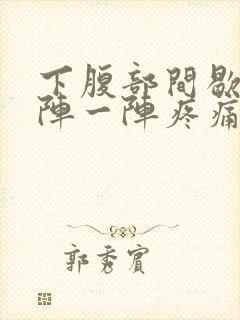 下腹部間歇
陣一陣疼痛
郭秀賓